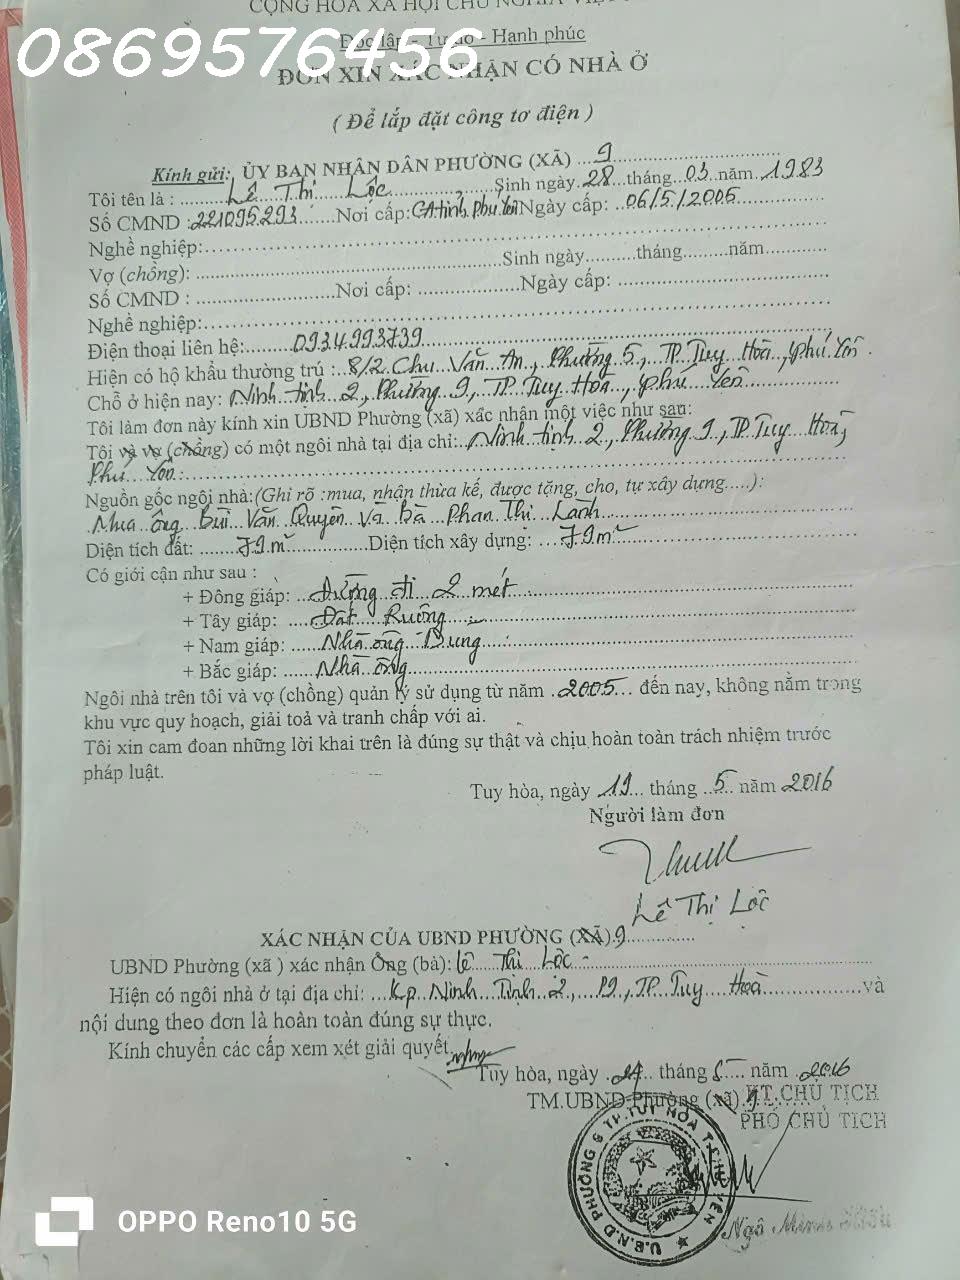 CỘNG HOÀ XÃ HỘI CHỦ NGHĨA VIỆT
0869576456
Độc lập - Tự do - Hạnh phúc
ĐƠN XIN XÁC NHẬN CÓ NHÀ Ở
( Để lắp đặt công tơ điện )
Kính gửi: ỦY BAN NHÂN DÂN PHƯỜNG (XÃ) ...9
Tôi tên là : Lê Thị Lộc Sinh ngày 28 tháng 03 năm 1983
Số CMND : 221095293 Nơi cấp: CA tỉnh Phú Yên Ngày cấp: 06/5/2005
Nghề nghiệp:
Vợ (chồng): Sinh ngày..........tháng.........năm
Số CMND : Nơi cấp: Ngày cấp:
Nghề nghiệp:
Điện thoại liên hệ: 0934.993739
Hiện có hộ khẩu thường trú : 8/2 Chu Văn An, Phường 5, TP Tuy Hoà, Phú Yên.
Chỗ ở hiện nay: Ninh tịnh 2, Phường 9, TP Tuy Hoà, Phú Yên
Tôi làm đơn này kính xin UBND Phường (xã) xác nhận một việc như sau:
Tôi và vợ (chồng) có một ngôi nhà tại địa chỉ: Ninh tịnh 2, Phường 9, TP Tuy Hoà,
Phú Yên
Nguồn gốc ngôi nhà:(Ghi rõ :mua, nhận thừa kế, được tặng, cho, tự xây dựng.....):
Mua ông Bùi Văn Quyên và bà Phan Thị Lành
Diện tích đất: 79 m² Diện tích xây dựng: 79 m²
Có giới cận như sau :
+ Đông giáp: Đường đi 2 mét
+ Tây giáp: Đất Ruộng
+ Nam giáp: Nhà ông Dung
+ Bắc giáp: Nhà ông
Ngôi nhà trên tôi và vợ (chồng) quản lý sử dụng từ năm 2005 đến nay, không nằm trong
khu vực quy hoạch, giải toả và tranh chấp với ai.
Tôi xin cam đoan những lời khai trên là đúng sự thật và chịu hoàn toàn trách nhiệm trước
pháp luật.
Tuy hòa, ngày 19 tháng 5 năm 2016
Người làm đơn
Lê Thị Lộc
XÁC NHẬN CỦA UBND PHƯỜNG (XÃ) 9
UBND Phường (xã ) xác nhận Ông (bà): Lê Thị Lộc
Hiện có ngôi nhà ở tại địa chỉ: Kp Ninh Tịnh 2, P9, TP Tuy Hoà và
nội dung theo đơn là hoàn toàn đúng sự thực.
Kính chuyển các cấp xem xét giải quyết
Tuy hòa, ngày 24 tháng 5 năm 2016
TM.UBND Phường (xã) 9 KT.CHỦ TỊCH
PHÓ CHỦ TỊCH
U.B.N.D PHƯỜNG 9 TP.TUY HÒA T.PHÚ YÊN
Ngô Minh
OPPO Reno10 5G